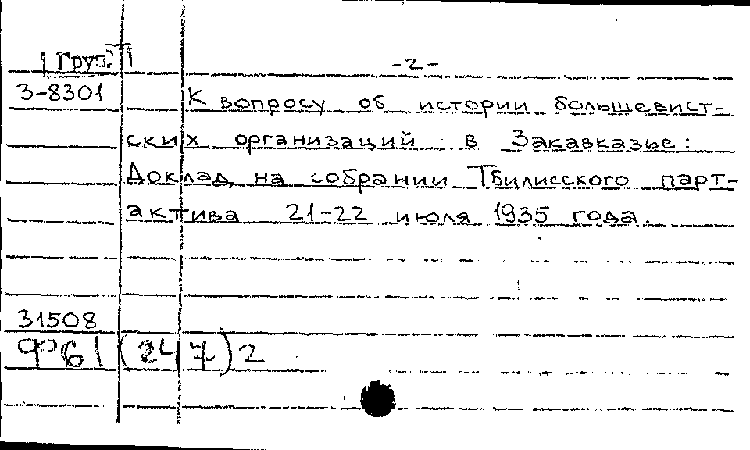 Груз. -2-
3-8301 К вопросу об истории большевист-
ских организаций в Закавказье:
Доклад на собрании Тбилисского парт-
актива 21-22 июля 1935 года.
31508
Ф61(247)2